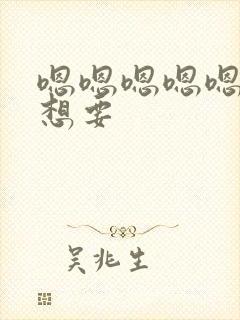 嗯嗯嗯嗯嗯
想要
吴兆生